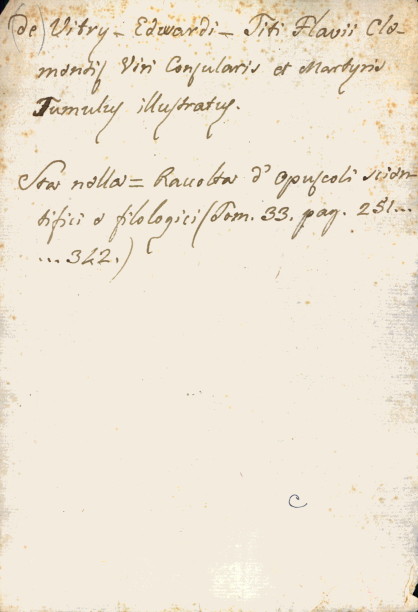 (de) Vitry - Edwardi - Titi Flavii Cle-
mentis Viri Consularis et Martyris
Tumulus illustratus.
Sta nella = Raccolta d' Opuscoli scien-
tifici e filologici (Tom. 33. pag. 251...
... 342.)
C